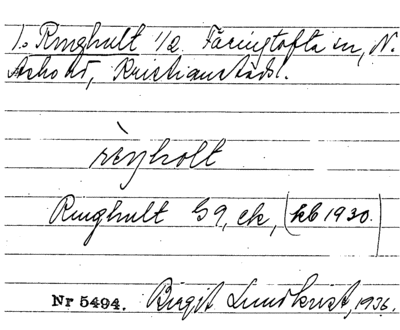 1. Ringhult 1/2 Färingtofta sn, N.
Åsbo hd, Kristianstads l.
rèŋholt
Ringhult G 9, ek, (kb 1930.)
Nr 5494. Birgit Lundkvist, 1936.